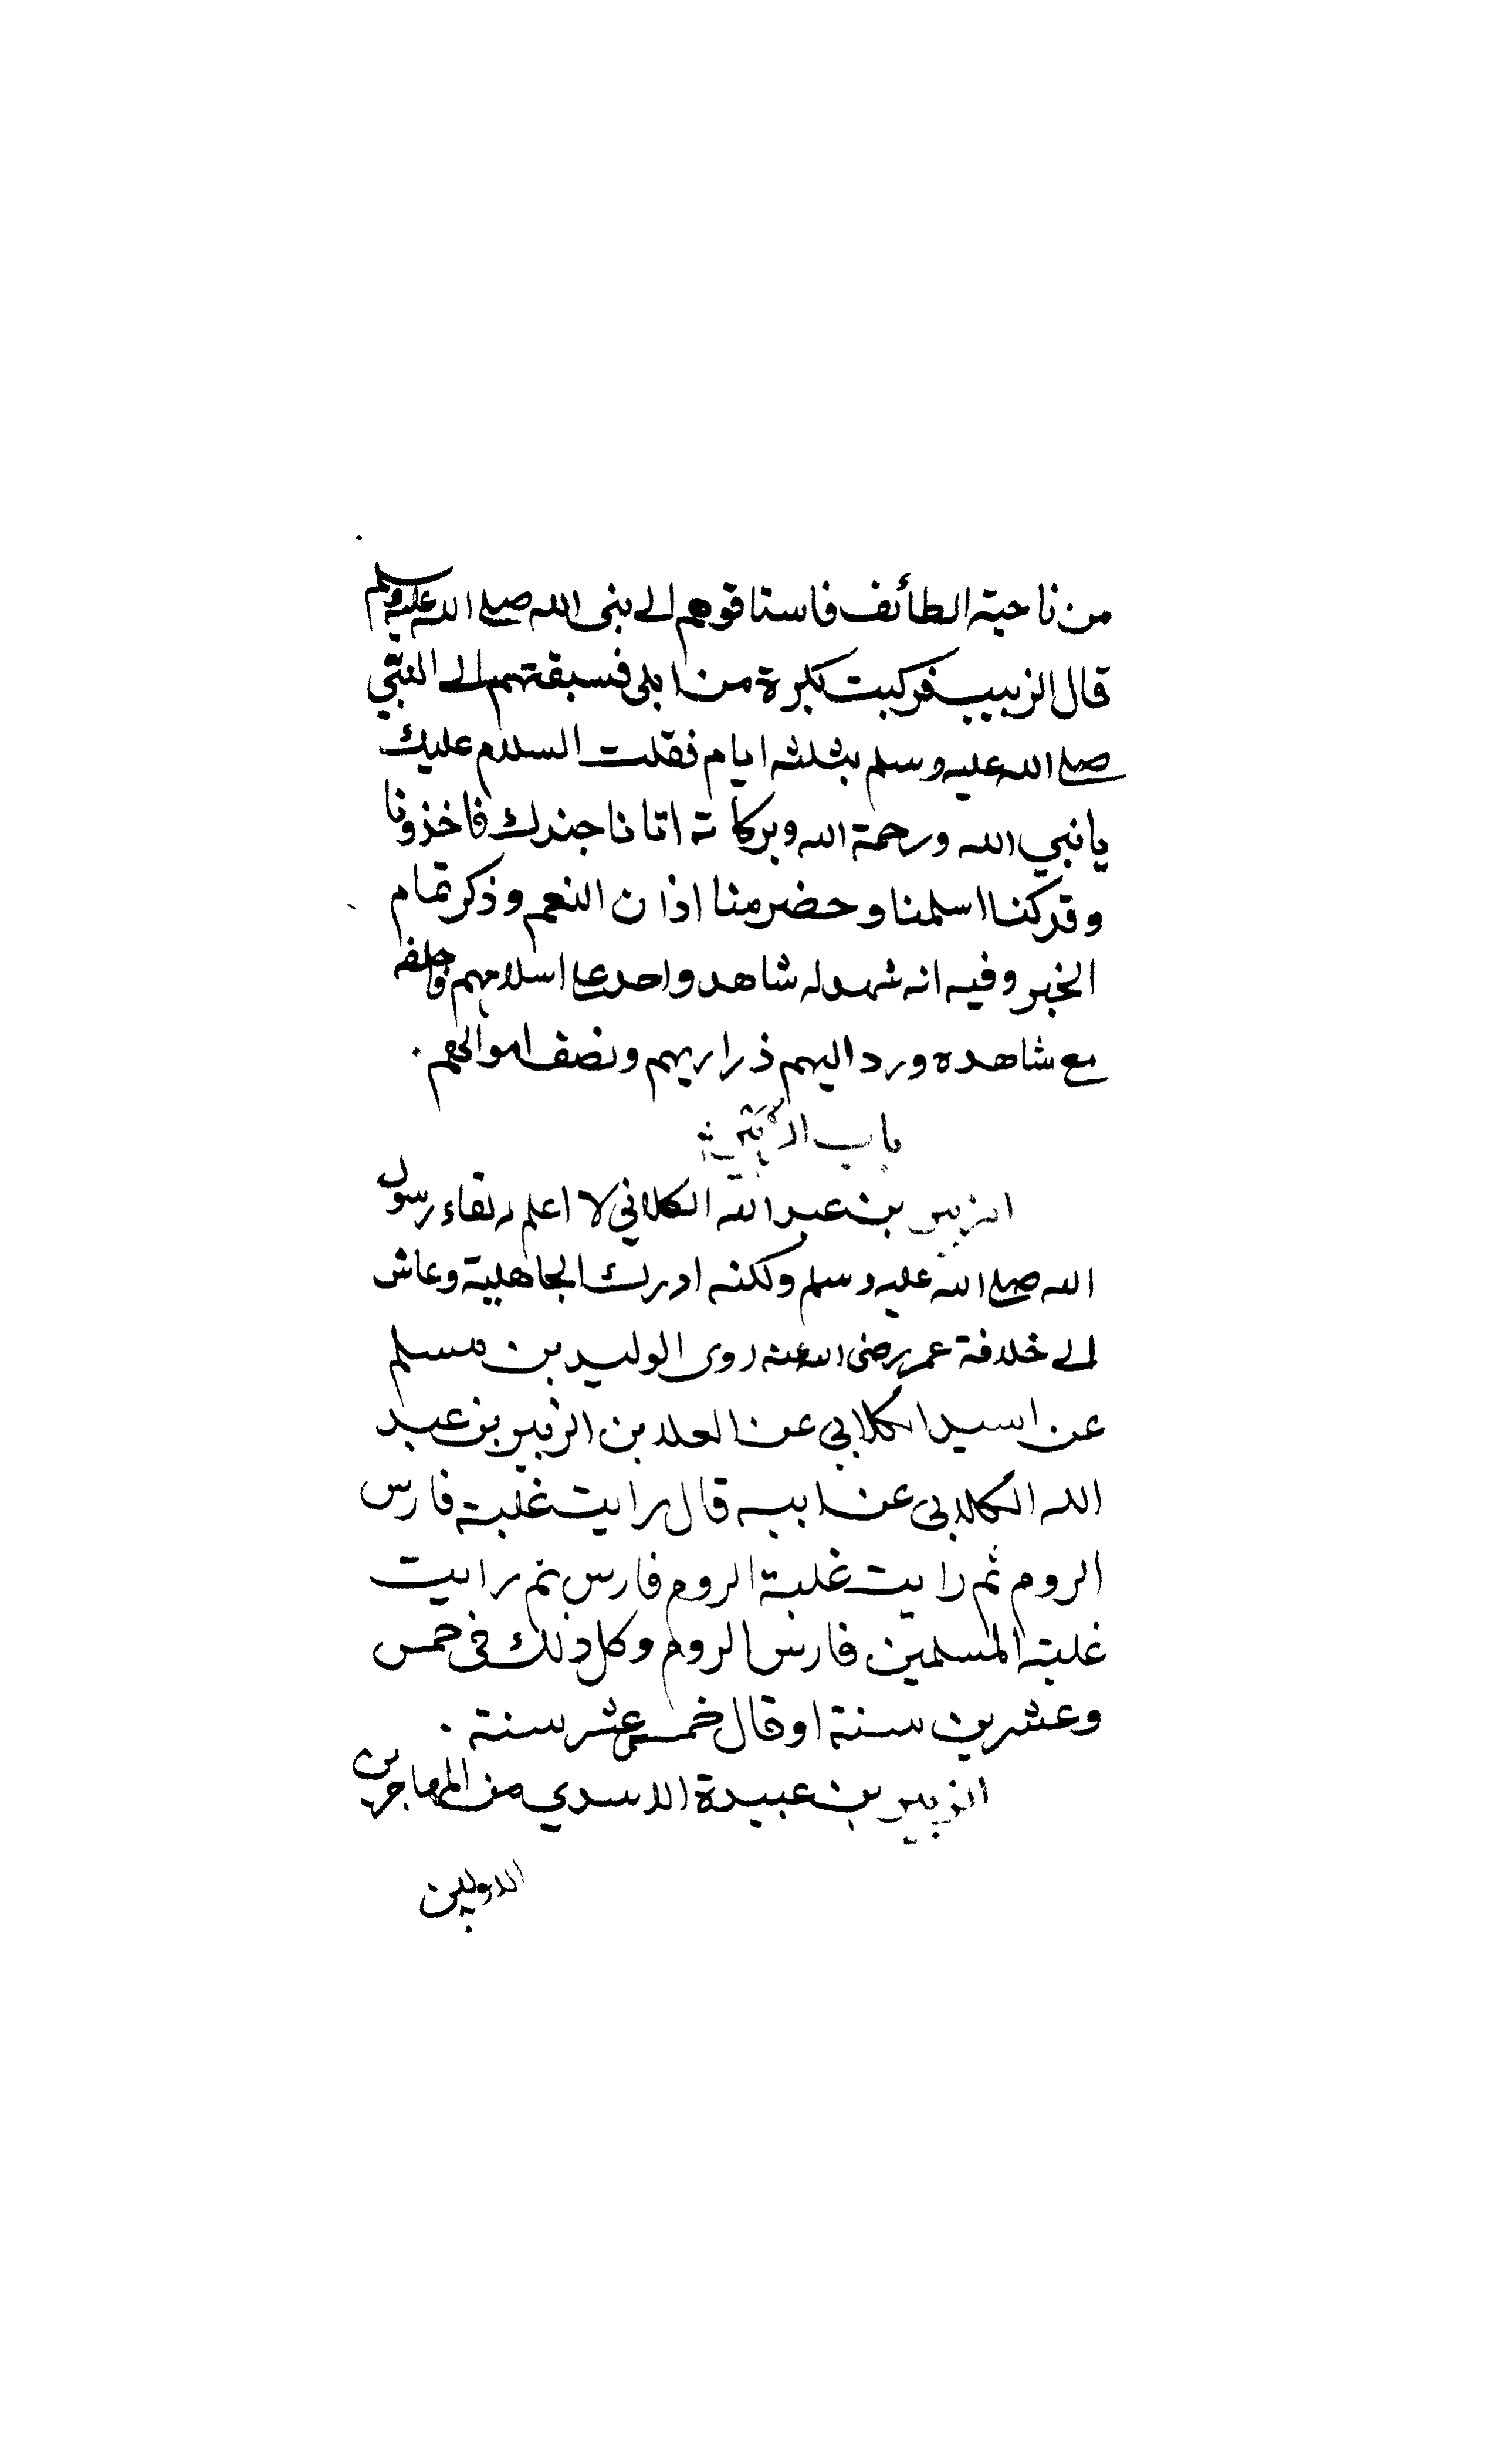 من ناحية الطائف فاستاقوهم الى نبى الله صلى الله عليه وسلم
قال الزبيب فركبت بكرة من ابلى فسبقتهم الى النبي
صلى الله عليه وسلم بثلثه ايام فقلت السلام عليك
يا نبي الله ورحمة الله وبركاته اتانا جندك فاخذونا
وقد كنا اسلمنا وحضرمنا اذان النعم وذكر تمام
الخبر وفيه انه شهد له شاهد واحد على اسلامهم فاحلفه
مع شاهده ورد اليهم ذراريهم ونصف اموالهم .
باب
الزبير بن عبد الله الكلابي لا اعلم له لقاء رسول
الله صلى الله عليه وسلم ولكنه ادرك الجاهلية وعاش
الى خلافة عمر رضى الله عنه روى الوليد بن مسلم
عن اسيد الكلابي عن العلا بن الزبير بن عبد
الله الكلابى عن ابيه قال رايت غلبة فارس
الروم ثم رايت غلبة الروم فارس ثم رايت
غلبة المسلمين فارس الروم وكل ذلك فى خمس
وعشرين سنة او قال خمس عشر سنة .
الزبير بن عبيدة الاسدي من المهاجرين
الاولين